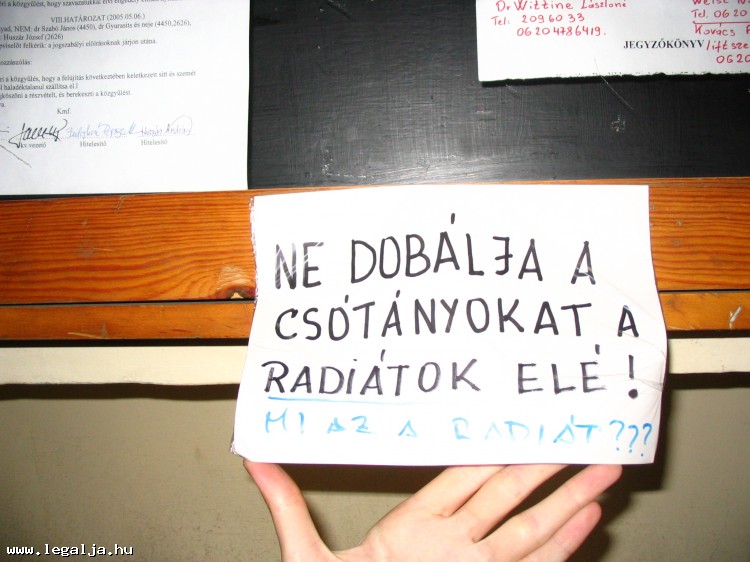 a közgyűlés, hogy szavazataikkal
VIII.HATÁROZAT (2005.05.06.)
NEM: dr Szabó János (4450), dr Gyurasits és neje (4450,2626),
Huszár József (2626)
felkérik: a jogszabályi előírásoknak járjon utána.
hozzászólás:
a közgyűlés, hogy a felújítás következtében keletkezett sitt és szemét
haladéktalanul szállítsa el.
megköszöni a részvételt, és berekeszti a közgyűlést.
Kmf.
jkv.vezető Hitelesítő Hitelesítő
Dr Wittine Lászlóné
Tel: 209 60 33
06 20 4786419.
Tel. 06 20
Kovács
JEGYZŐKÖNYV
06 20
NE DOBÁLJA A
CSÓTÁNYOKAT A
RADIÁTOK ELÉ!
MI AZ A RADIÁT???
www.legalja.hu